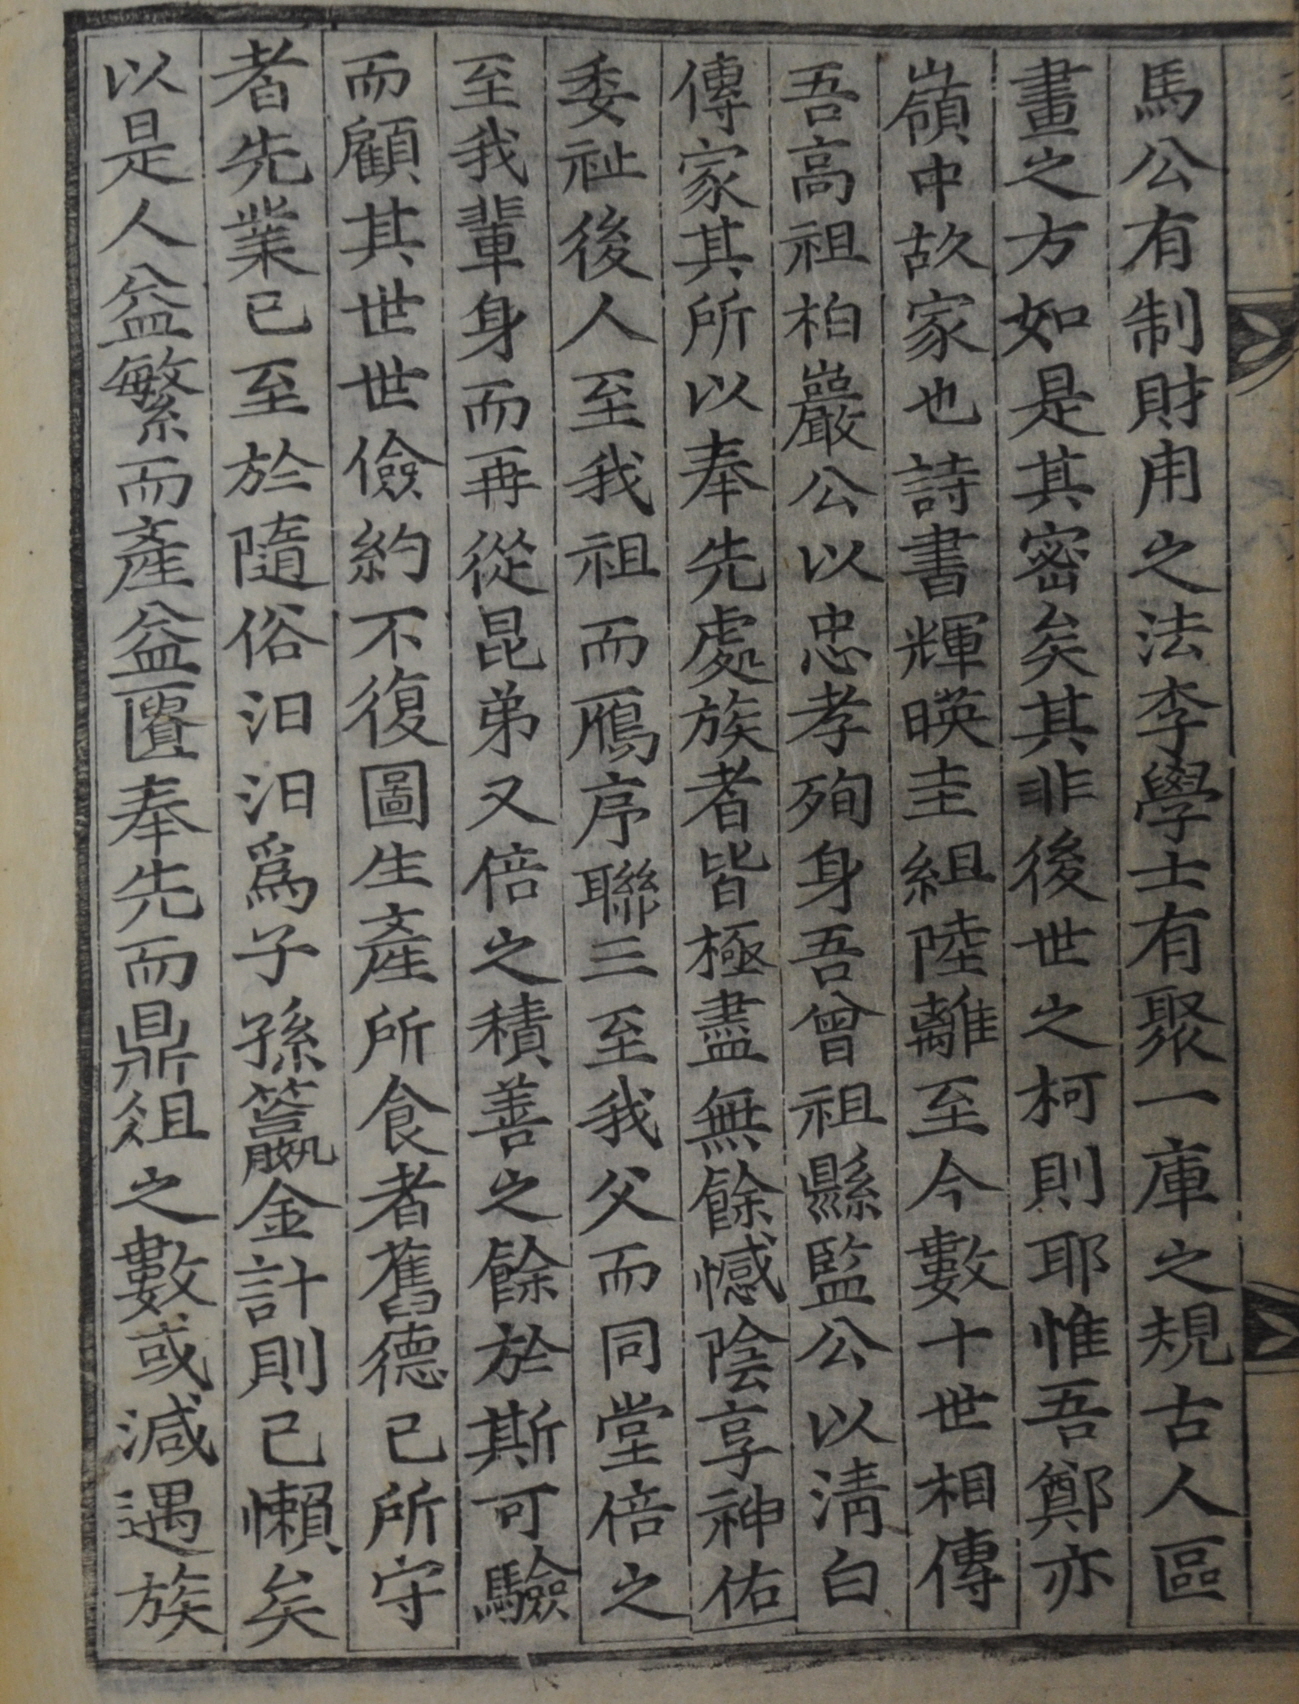 馬公有制財用之法李學士有聚一庫之規古人區
畫之方如是其密矣其非後世之柯則耶惟吾鄭亦
嶺中故家也詩書輝暎圭組陸離至今數十世相傳
吾高祖柏巖公以忠孝殉身吾曾祖縣監公以淸白
傳家其所以奉先處族者皆極盡無餘憾陰享神佑
委祉後人至我祖而鴈序聯三至我父而同堂倍之
至我輩身而再從昆弟又倍之積善之餘於斯可驗
而顧其世世儉約不復圖生產所食者舊德已所守
者先業已至於隨俗汩汩爲子孫籯金計則已懶矣
以是人益繁而產益匱奉先而鼎俎之數或減遇族